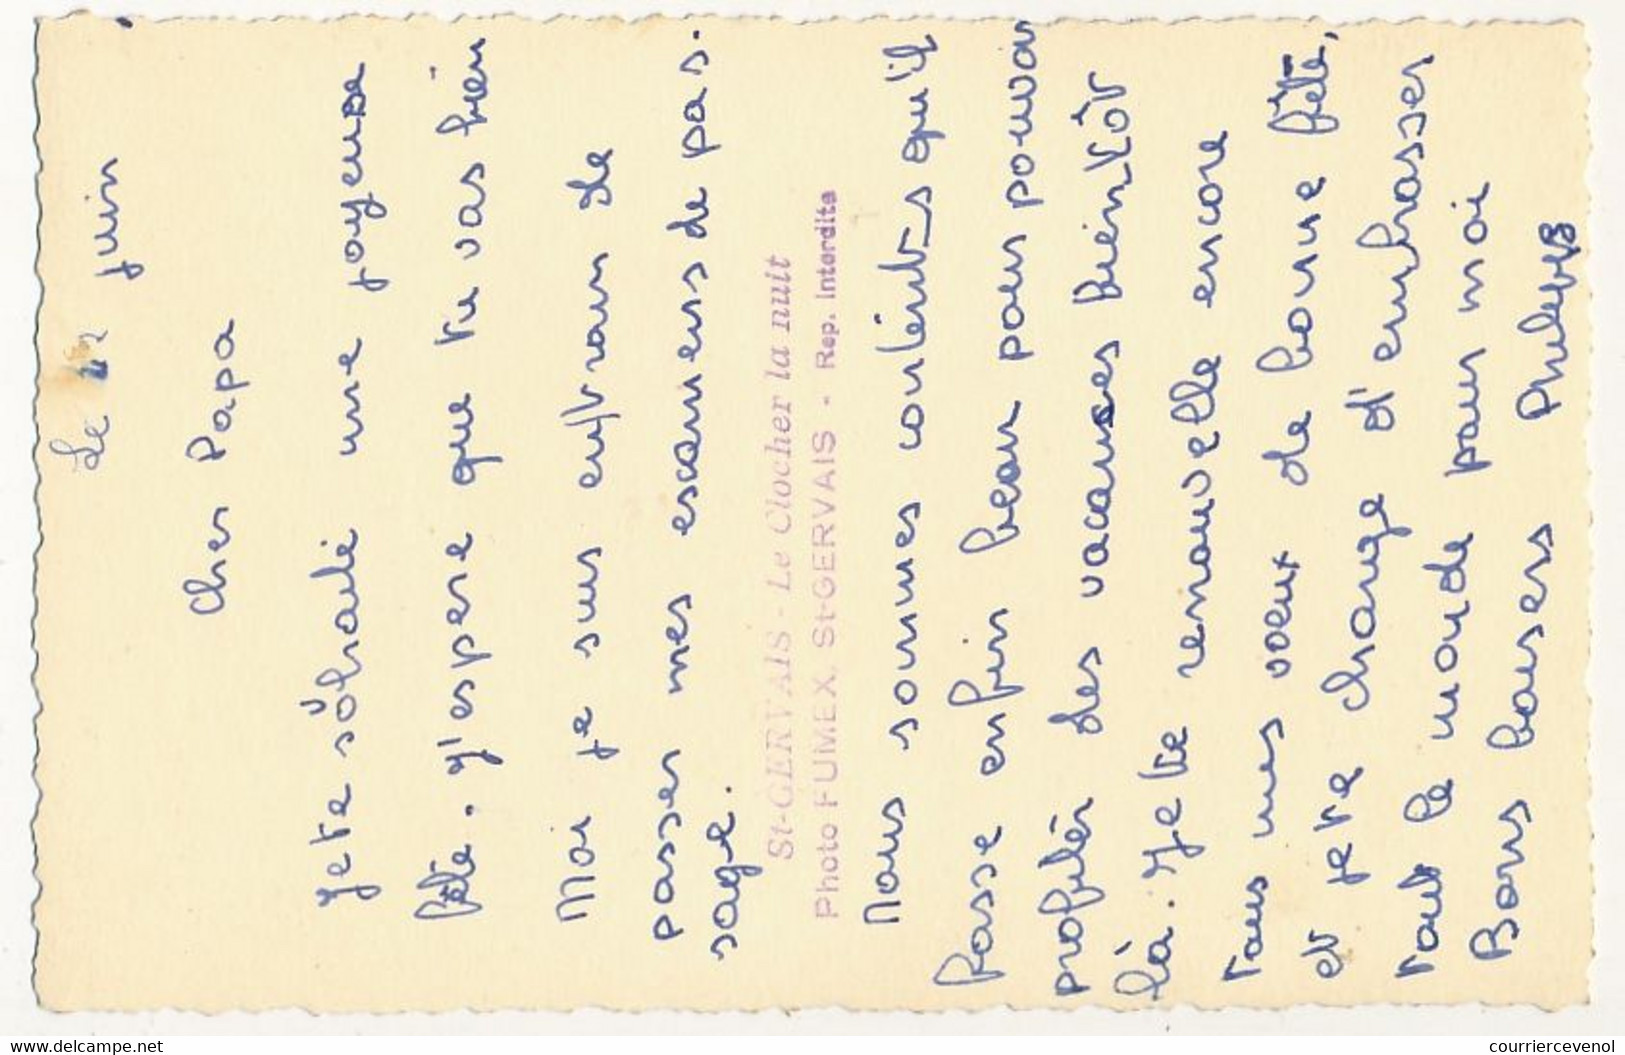 Le juin
Cher Papa
Je te sôuhaite une joyeuse
fête. J'espere que tu vas bien
Moi je suis entrain de
passer mes examens de pas-
sage.
St-GERVAIS - Le Clocher la nuit
Photo FUMEX, St-GERVAIS - Rep. Interdite
Nous sommes contents qu'il
fasse enfin beau pour pouvoir
profiter des vacances bientôt
là. Je te renouvelle encore
tous mes voeux de bonne fête,
et je te charge d'embrasser
tout le monde pour moi
Bons baisers Philippe
courriercevenol
www.delcampe.net